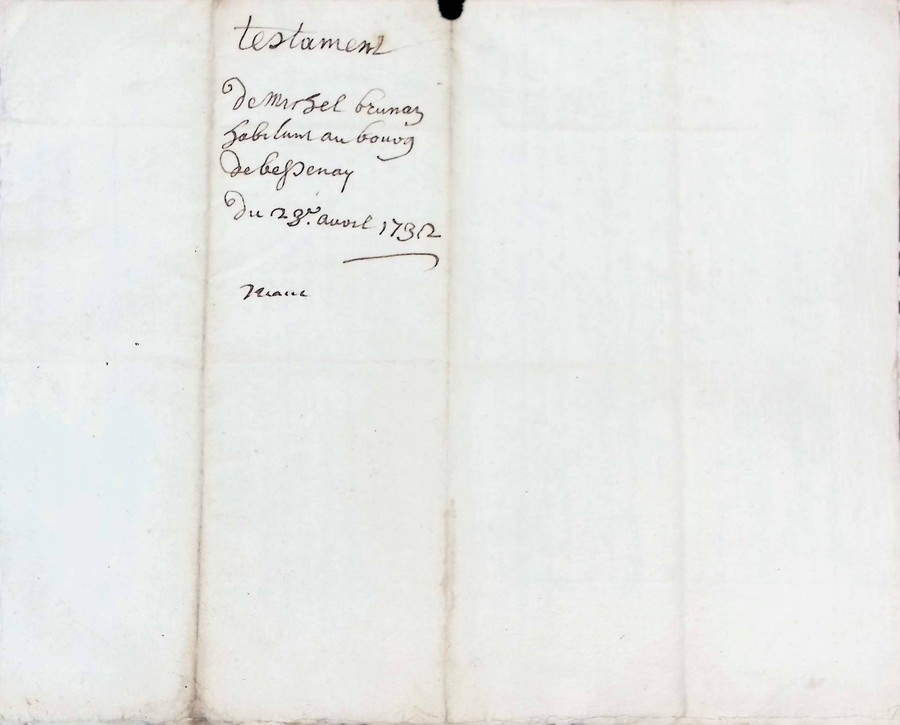 testament
de Michel brunay
habitant au bourg
de bessenay
du 23e. avril 1732